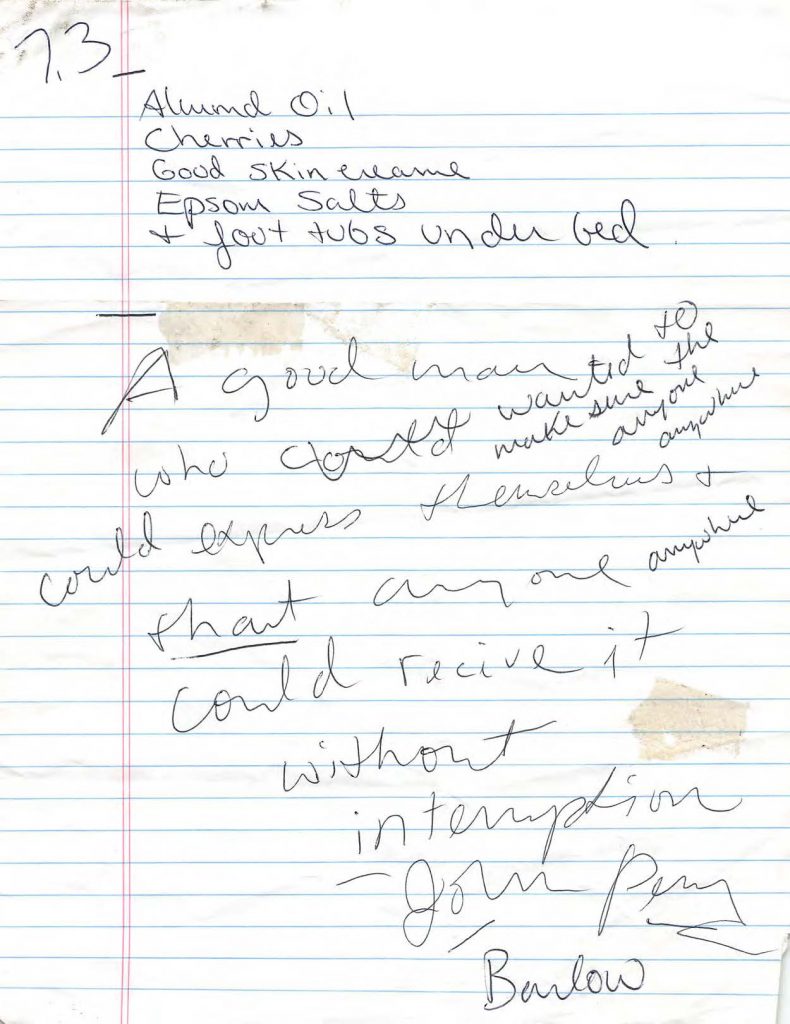 7.3
Almond Oil
Cherries
Good skin creame
Epsom Salts
+ foot tubs under bed.
A good man
who could wanted to
make sure the
anyone
anywhere
could express themselves +
that anyone anywhere
could recive it
without
interruption
- John Perry
Barlow